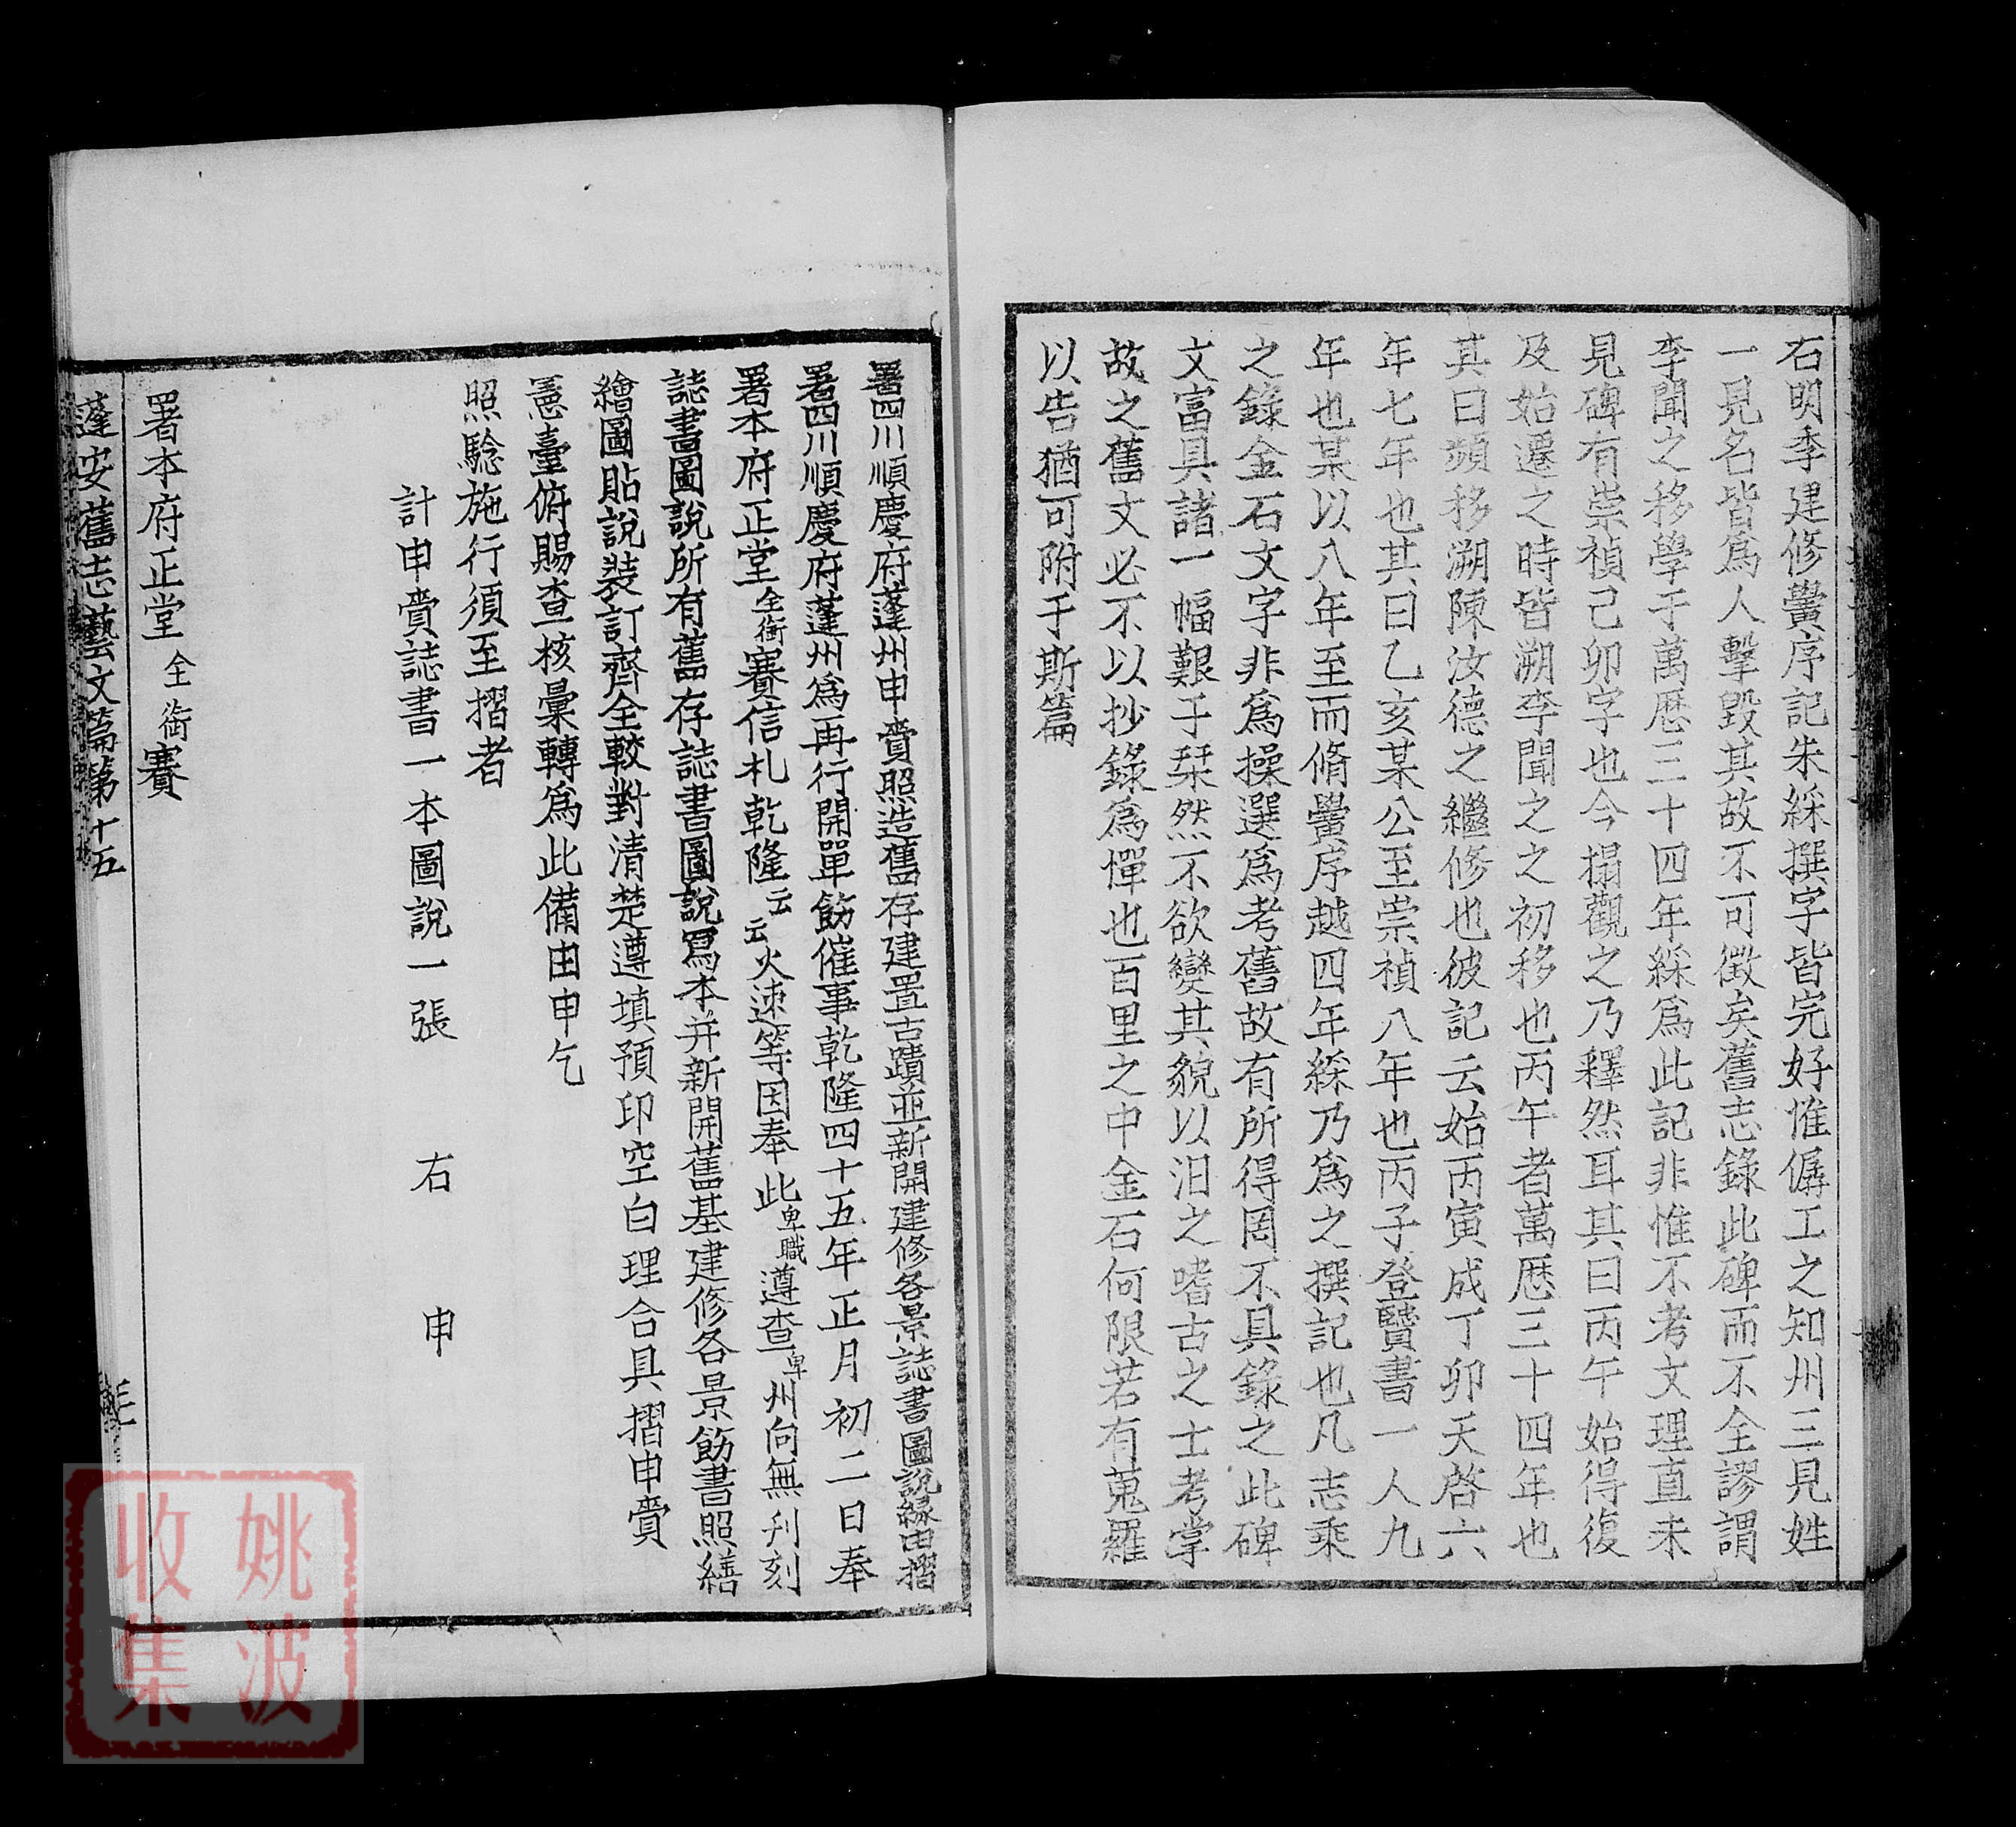 右明季建修黌序記朱綵撰字皆完好惟僝工之知州三見姓
一見名皆爲人擊毀其故不可徵矣舊志錄此碑而不全謬謂
李聞之移學于萬厯三十四年綵爲此記非惟不考文理直未
見碑有崇禎己卯字也今搨觀之乃釋然耳其曰丙午始得復
及始遷之時皆溯李聞之之初移也丙午者萬厯三十四年也
其曰頻移溯陳汝德之繼修也彼記云始丙寅成丁卯天啓六
年七年也其曰乙亥某公至崇禎八年也丙子登賢書一人九
年也某以八年至而脩黌序越四年綵乃爲之撰記也凡志乘
之錄金石文字非爲操選爲考舊故有所得罔不具錄之此碑
文富具諸一幅艱于棊然不欲變其貌以汩之嗜古之士考掌
故之舊文必不以抄錄爲憚也百里之中金石何限若有蒐羅
以告猶可附于斯篇
署四川順慶府蓬州申賫照造舊存建置古蹟並新開建修各景誌書圖說緣由摺
署四川順慶府蓬州爲再行開單飭催事乾隆四十五年正月初二日奉
署本府正堂全銜賽信札乾隆云云火速等因奉此卑職遵查卑州向無刋刻
誌書圖說所有舊存誌書圖說寫本并新開舊基建修各景飭書照繕
繪圖貼說裝訂齊全較對清楚遵填預印空白理合具摺申賫
憲臺俯賜查核彙轉爲此備由申乞
照騐施行須至摺者
計申賫誌書一本圖說一張　右　申
署本府正堂全銜賽
蓬安舊志藝文篇第十五
姚波
收集